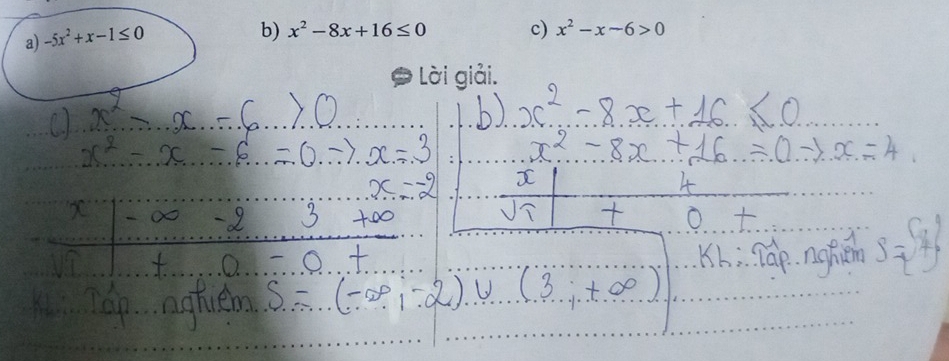 a) -5x² + x - 1 ≤ 0 b) x² - 8x + 16 ≤ 0 c) x² - x - 6 > 0
Lời giải.
c) x² - x - 6 > 0
x² - x - 6 = 0 → x = 3
x = -2
x | -∞ -2 3 +∞
VT + 0 - 0 + 
KL: Tập nghiệm S = (-∞; -2) ∪ (3; +∞)
b) x² - 8x + 16 ≤ 0
x² - 8x + 16 = 0 → x = 4.
x | 4
VT | + 0 +
KL: Tập nghiệm S = {4}